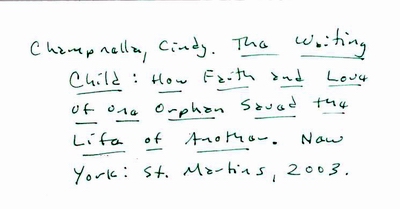 Champnella, Cindy. The Waiting
Child: How Faith and Love
of one Orphan Saved the
Life of Another. New
York: St. Martins, 2003.